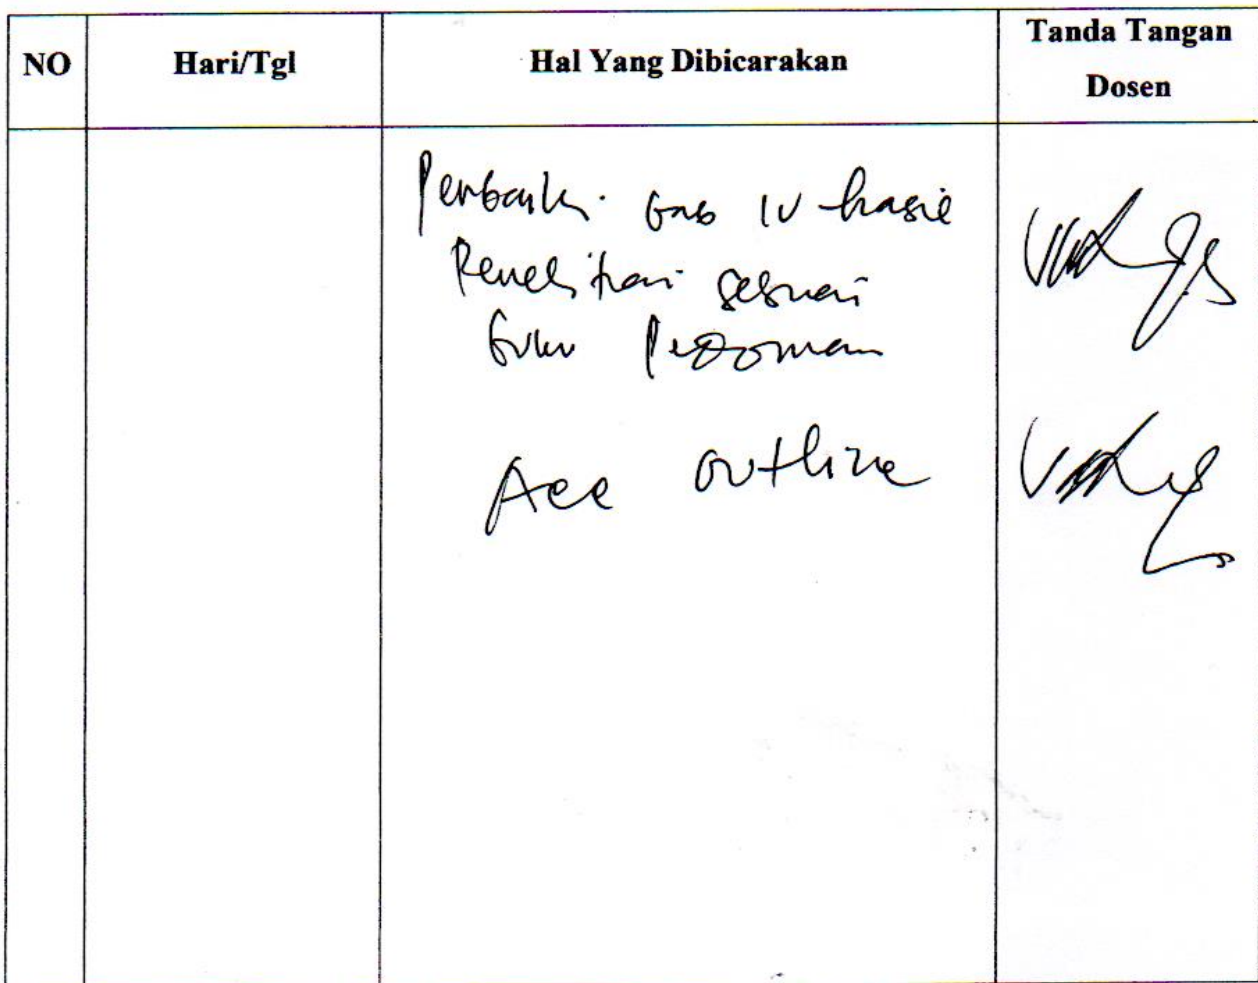 NO
Hari/Tgl
Hal Yang Dibicarakan
Tanda Tangan
Dosen
Perbaiki bab IV hasil
Penelitian sesuai
buku Pedoman
Acc outline